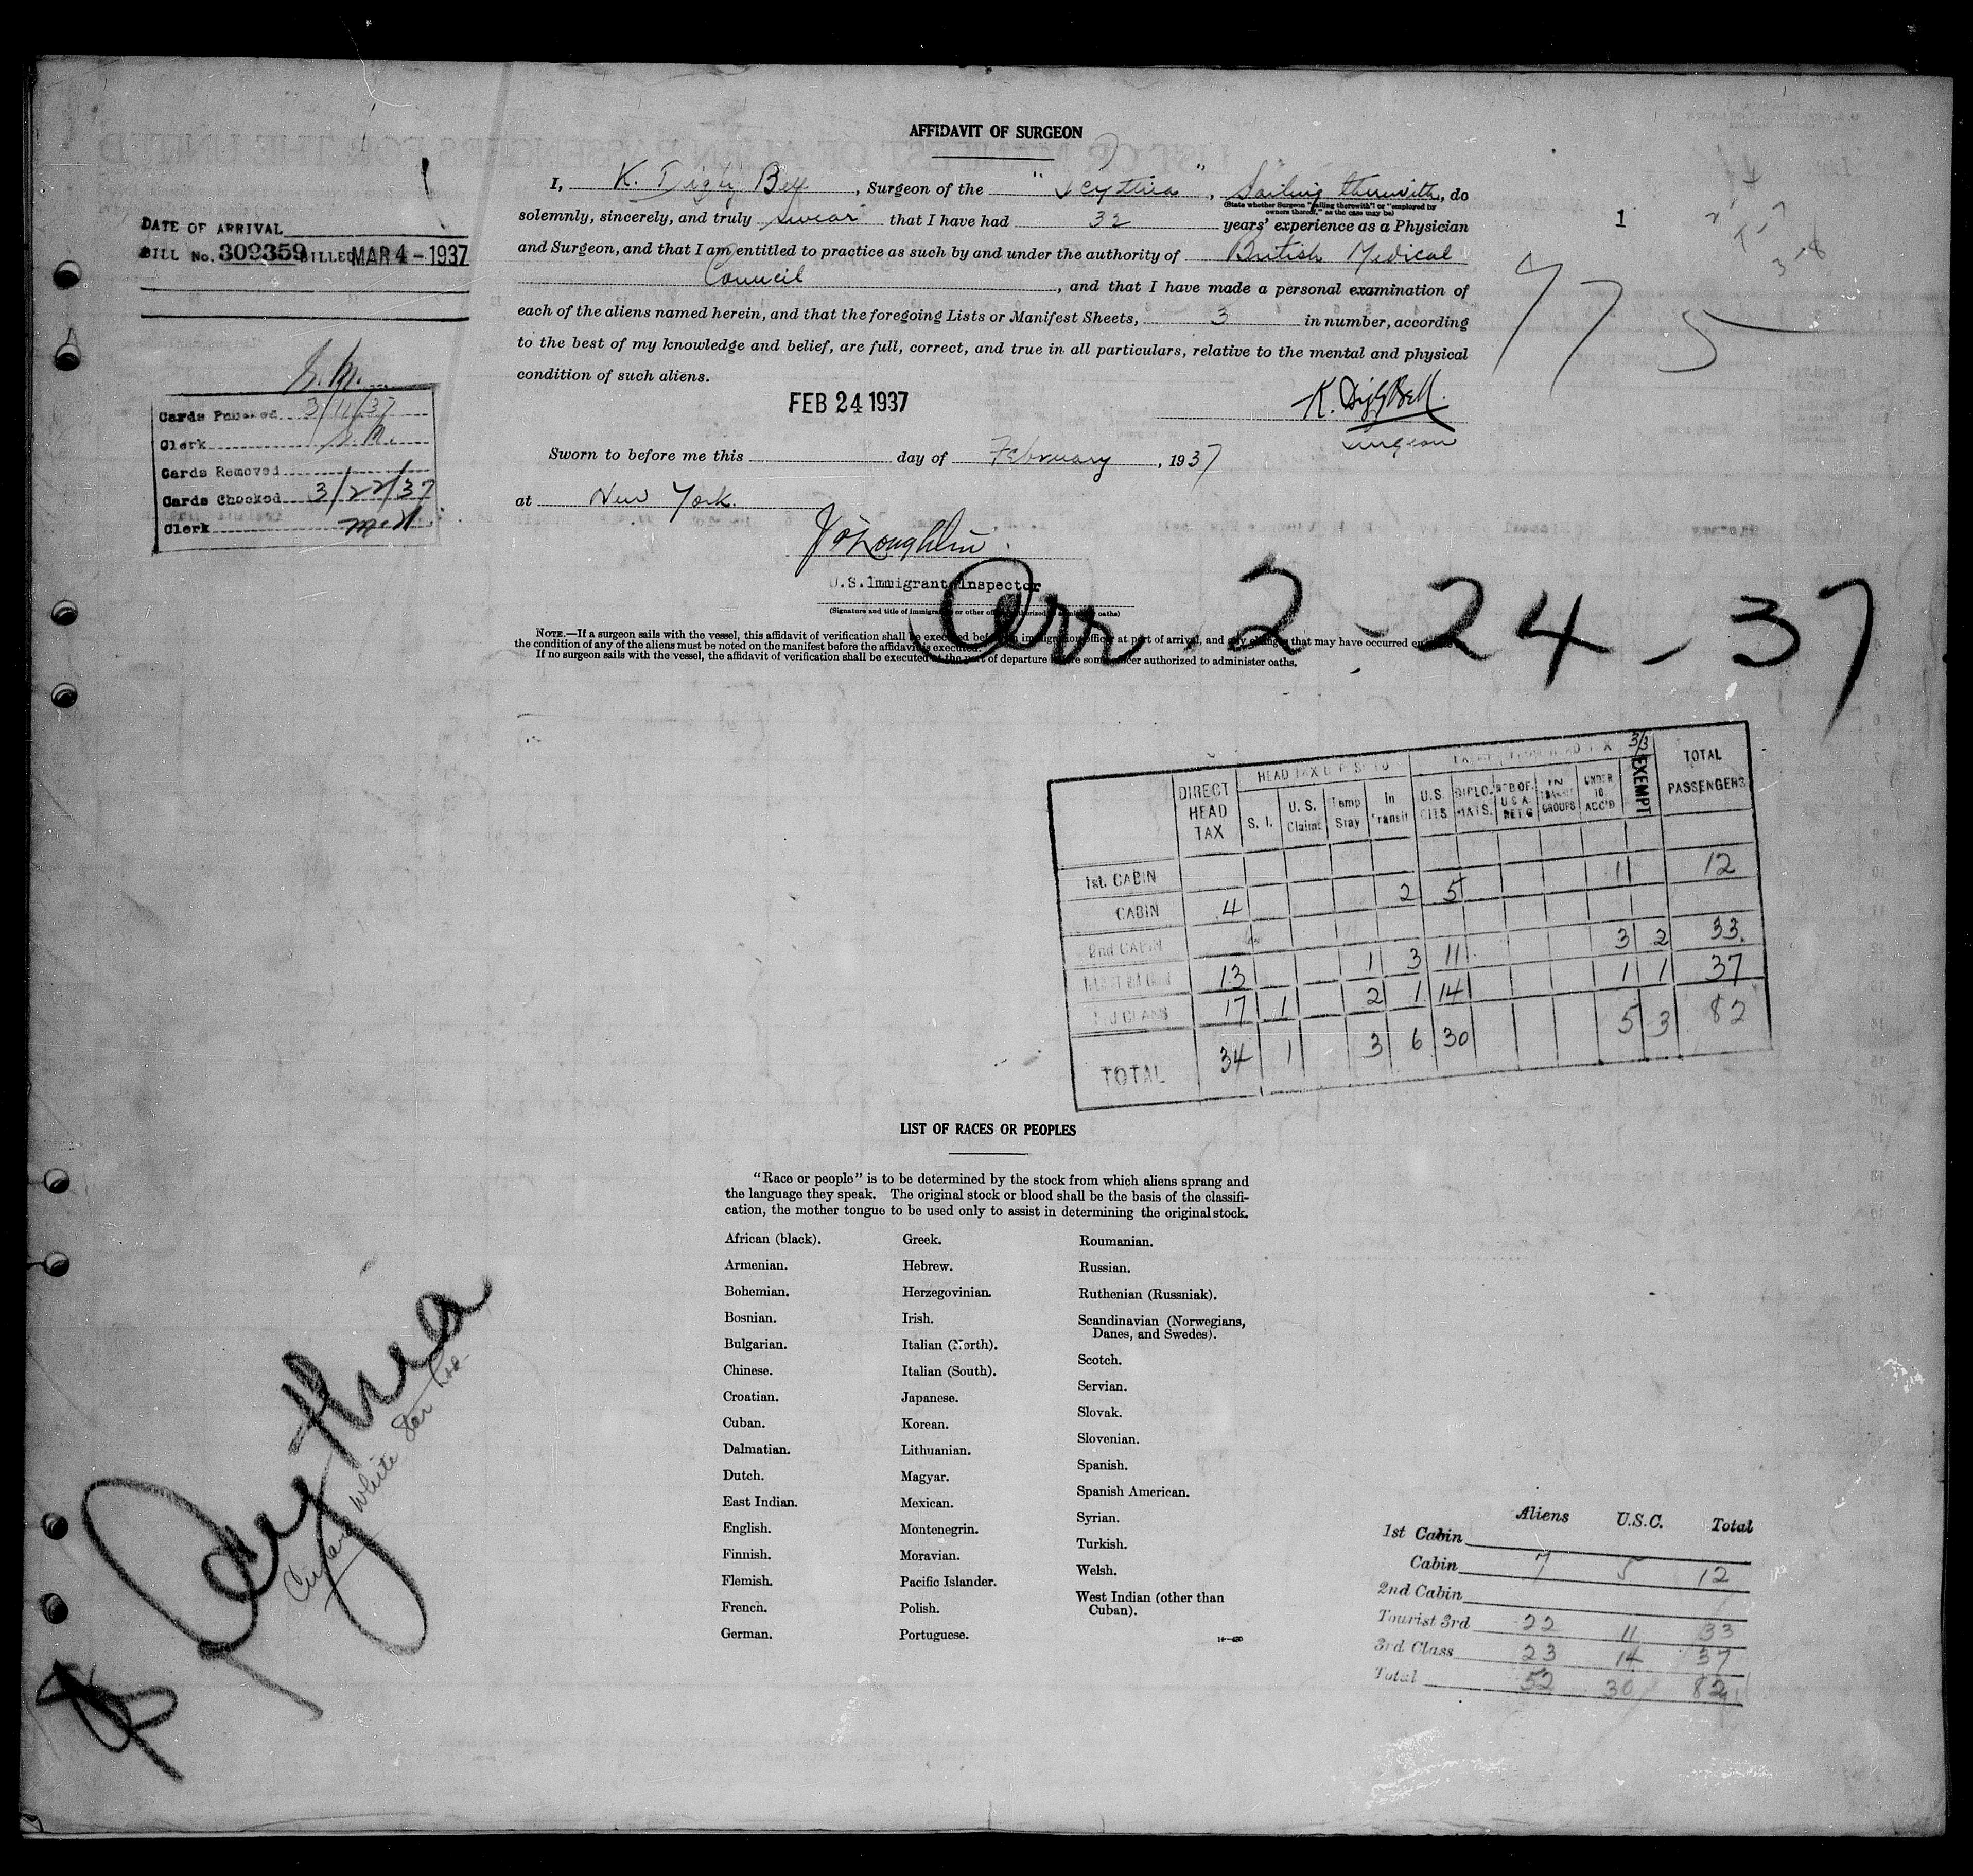 AFFIDAVIT OF SURGEON
I, K. Digby Bell, Surgeon of the "Scythia", Sailing therewith, do
(State whether Surgeon "sailing therewith" or "employed by
owners thereof," as the case may be)
solemnly, sincerely, and truly swear that I have had 32 years' experience as a Physician
and Surgeon, and that I am entitled to practice as such by and under the authority of British Medical
Council, and that I have made a personal examination of
each of the aliens named herein, and that the foregoing Lists or Manifest Sheets, 3 in number, according
to the best of my knowledge and belief, are full, correct, and true in all particulars, relative to the mental and physical
condition of such aliens.
FEB 24 1937
K. Digby Bell.
Surgeon
Sworn to before me this day of February, 1937
at New York.
U.S. Immigrant Inspector
(Signature and title of immigration or other officer authorized to administer oaths)
NOTE.—If a surgeon sails with the vessel, this affidavit of verification shall be executed before an immigration officer at port of arrival, and any changes that may have occurred
the condition of any of the aliens must be noted on the manifest before the affidavit is executed.
If no surgeon sails with the vessel, the affidavit of verification shall be executed at the port of departure before some officer authorized to administer oaths.
DATE OF ARRIVAL
BILL No. 309359 BILLED MAR 4 - 1937
Cards Punched 3/11/37
Clerk
Cards Removed
Cards Checked 3/22/37
Clerk
1
775
Arr. 2-24-37
DIRECT HEAD TAX
S. I.
U. S. Claims
Temp Stay
In Transit
U.S. CITS
DIPLOMATS.
IN TRANSIT GROUPS
UNDER 16 ACC'D
3/3
EXEMPT
TOTAL PASSENGERS
1st. CABIN
CABIN 4 2 5 1 12
2nd CABIN
13 1 3 11 3 2 33
3rd CLASS 17 1 2 1 14 1 1 37
TOTAL 34 1 3 6 30 5 3 82
LIST OF RACES OR PEOPLES
"Race or people" is to be determined by the stock from which aliens sprang and
the language they speak. The original stock or blood shall be the basis of the classifi-
cation, the mother tongue to be used only to assist in determining the original stock.
African (black).
Armenian.
Bohemian.
Bosnian.
Bulgarian.
Chinese.
Croatian.
Cuban.
Dalmatian.
Dutch.
East Indian.
English.
Finnish.
Flemish.
French.
German.
Greek.
Hebrew.
Herzegovinian.
Irish.
Italian (North).
Italian (South).
Japanese.
Korean.
Lithuanian.
Magyar.
Mexican.
Montenegrin.
Moravian.
Pacific Islander.
Polish.
Portuguese.
Roumanian.
Russian.
Ruthenian (Russniak).
Scandinavian (Norwegians,
Danes, and Swedes).
Scotch.
Servian.
Slovak.
Slovenian.
Spanish.
Spanish American.
Syrian.
Turkish.
Welsh.
West Indian (other than
Cuban).
Scythia
Cunard White Star
Aliens U.S.C. Total
1st Cabin
Cabin 7 5 12
2nd Cabin
Tourist 3rd 22 11 33
3rd Class 23 14 37
Total 52 30 82